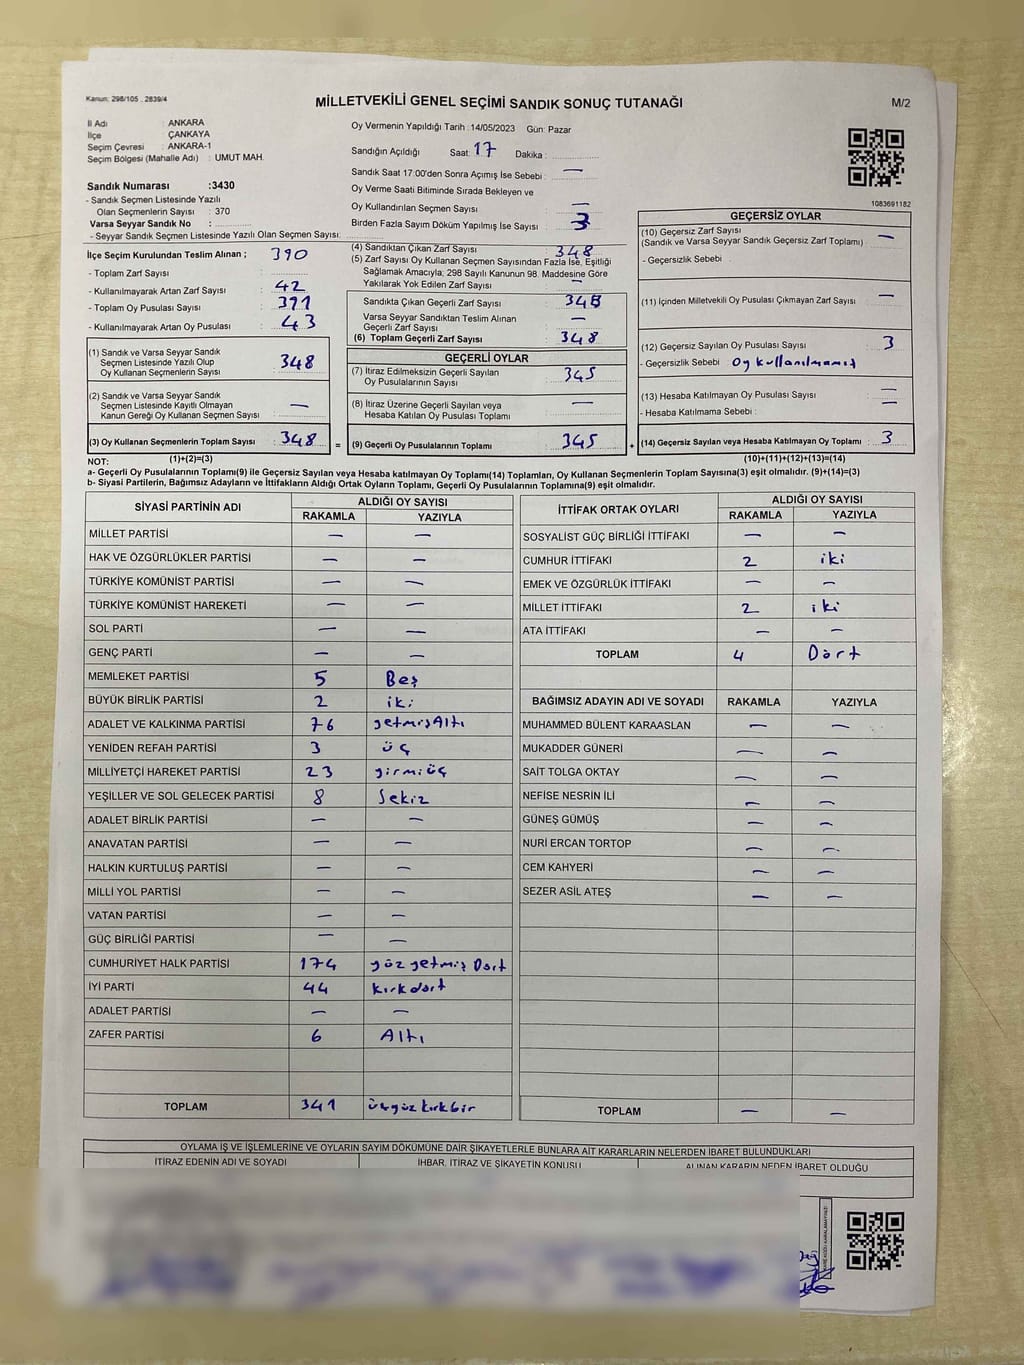 Kanun: 298/105 . 2839/4
MİLLETVEKİLİ GENEL SEÇİMİ SANDIK SONUÇ TUTANAĞI
M/2
İl Adı : ANKARA
İlçe : ÇANKAYA
Seçim Çevresi : ANKARA-1
Seçim Bölgesi (Mahalle Adı) : UMUT MAH.
Sandık Numarası :3430
- Sandık Seçmen Listesinde Yazılı
Olan Seçmenlerin Sayısı : 370
Varsa Seyyar Sandık No :
- Seyyar Sandık Seçmen Listesinde Yazılı Olan Seçmen Sayısı:
İlçe Seçim Kurulundan Teslim Alınan ; 390
- Toplam Zarf Sayısı
- Kullanılmayarak Artan Zarf Sayısı : 42
- Toplam Oy Pusulası Sayısı : 391
- Kullanılmayarak Artan Oy Pusulası : 43
(1) Sandık ve Varsa Seyyar Sandık
Seçmen Listesinde Yazılı Olup
Oy Kullanan Seçmenlerin Sayısı : 348
(2) Sandık ve Varsa Seyyar Sandık
Seçmen Listesinde Kayıtlı Olmayan
Kanun Gereği Oy Kullanan Seçmen Sayısı : —
(3) Oy Kullanan Seçmenlerin Toplam Sayısı : 348
(1)+(2)=(3)
Oy Vermenin Yapıldığı Tarih : 14/05/2023 Gün: Pazar
Sandığın Açıldığı Saat: 17 Dakika :
Sandık Saat 17:00'den Sonra Açımış İse Sebebi : —
Oy Verme Saati Bitiminde Sırada Bekleyen ve
Oy Kullandırılan Seçmen Sayısı : —
Birden Fazla Sayım Döküm Yapılmış İse Sayısı : 3
(4) Sandıktan Çıkan Zarf Sayısı : 348
(5) Zarf Sayısı Oy Kullanan Seçmen Sayısından Fazla İse, Eşitliği
Sağlamak Amacıyla; 298 Sayılı Kanunun 98. Maddesine Göre
Yakılarak Yok Edilen Zarf Sayısı : —
Sandıkta Çıkan Geçerli Zarf Sayısı : 348
Varsa Seyyar Sandıktan Teslim Alınan
Geçerli Zarf Sayısı : —
(6) Toplam Geçerli Zarf Sayısı : 348
GEÇERLİ OYLAR
(7) İtiraz Edilmeksizin Geçerli Sayılan
Oy Pusulalarının Sayısı : 345
(8) İtiraz Üzerine Geçerli Sayılan veya
Hesaba Katılan Oy Pusulası Toplamı : —
= (9) Geçerli Oy Pusulalarının Toplamı : 345
1083691182
GEÇERSİZ OYLAR
(10) Geçersiz Zarf Sayısı
(Sandık ve Varsa Seyyar Sandık Geçersiz Zarf Toplamı) : —
- Geçersizlik Sebebi :
(11) İçinden Milletvekili Oy Pusulası Çıkmayan Zarf Sayısı : —
(12) Geçersiz Sayılan Oy Pusulası Sayısı : 3
- Geçersizlik Sebebi : Oy kullanılmamış
(13) Hesaba Katılmayan Oy Pusulası Sayısı : —
- Hesaba Katılmama Sebebi : —
+ (14) Geçersiz Sayılan veya Hesaba Katılmayan Oy Toplamı : 3
(10)+(11)+(12)+(13)=(14)
NOT:
a- Geçerli Oy Pusulalarının Toplamı(9) ile Geçersiz Sayılan veya Hesaba katılmayan Oy Toplamı(14) Toplamları, Oy Kullanan Seçmenlerin Toplam Sayısına(3) eşit olmalıdır. (9)+(14)=(3)
b- Siyasi Partilerin, Bağımsız Adayların ve İttifakların Aldığı Ortak Oyların Toplamı, Geçerli Oy Pusulalarının Toplamına(9) eşit olmalıdır.
SİYASİ PARTİNİN ADI ALDIĞI OY SAYISI
RAKAMLA YAZIYLA
MİLLET PARTİSİ — —
HAK VE ÖZGÜRLÜKLER PARTİSİ — —
TÜRKİYE KOMÜNİST PARTİSİ — —
TÜRKİYE KOMÜNİST HAREKETİ — —
SOL PARTİ — —
GENÇ PARTİ — —
MEMLEKET PARTİSİ 5 Beş
BÜYÜK BİRLİK PARTİSİ 2 iki
ADALET VE KALKINMA PARTİSİ 76 yetmişAltı
YENİDEN REFAH PARTİSİ 3 üç
MİLLİYETÇİ HAREKET PARTİSİ 23 yirmiüç
YEŞİLLER VE SOL GELECEK PARTİSİ 8 Sekiz
ADALET BİRLİK PARTİSİ — —
ANAVATAN PARTİSİ — —
HALKIN KURTULUŞ PARTİSİ — —
MİLLİ YOL PARTİSİ — —
VATAN PARTİSİ — —
GÜÇ BİRLİĞİ PARTİSİ — —
CUMHURİYET HALK PARTİSİ 174 yüz yetmiş Dört
İYİ PARTİ 44 kırkdört
ADALET PARTİSİ — —
ZAFER PARTİSİ 6 Altı
TOPLAM 341 üçyüzkırkbir
İTTİFAK ORTAK OYLARI ALDIĞI OY SAYISI
RAKAMLA YAZIYLA
SOSYALİST GÜÇ BİRLİĞİ İTTİFAKI — —
CUMHUR İTTİFAKI 2 iki
EMEK VE ÖZGÜRLÜK İTTİFAKI — —
MİLLET İTTİFAKI 2 iki
ATA İTTİFAKI — —
TOPLAM 4 Dört
BAĞIMSIZ ADAYIN ADI VE SOYADI RAKAMLA YAZIYLA
MUHAMMED BÜLENT KARAASLAN — —
MUKADDER GÜNERİ — —
SAİT TOLGA OKTAY — —
NEFİSE NESRİN İLİ — —
GÜNEŞ GÜMÜŞ — —
NURİ ERCAN TORTOP — —
CEM KAHYERİ — —
SEZER ASİL ATEŞ — —
TOPLAM — —
OYLAMA İŞ VE İŞLEMLERİNE VE OYLARIN SAYIM DÖKÜMÜNE DAİR ŞİKAYETLERLE BUNLARA AİT KARARLARIN NELERDEN İBARET BULUNDUKLARI
İTİRAZ EDENİN ADI VE SOYADI İHBAR, İTİRAZ VE ŞİKAYETİN KONUSU ALINAN KARARIN NEDEN İBARET OLDUĞU